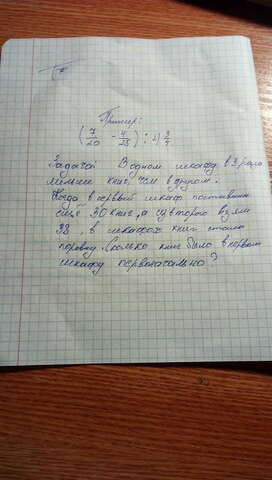 Пример:
(7/20 - 4/25) : 2 3/7
Задача: В одном шкафу в 3 раза
меньше книг, чем в другом.
Когда в первый шкаф поставили
ещё 30 книг, а из второго взяли
38, в шкафах книг стало
поровну. Сколько книг было в первом
шкафу первоначально?